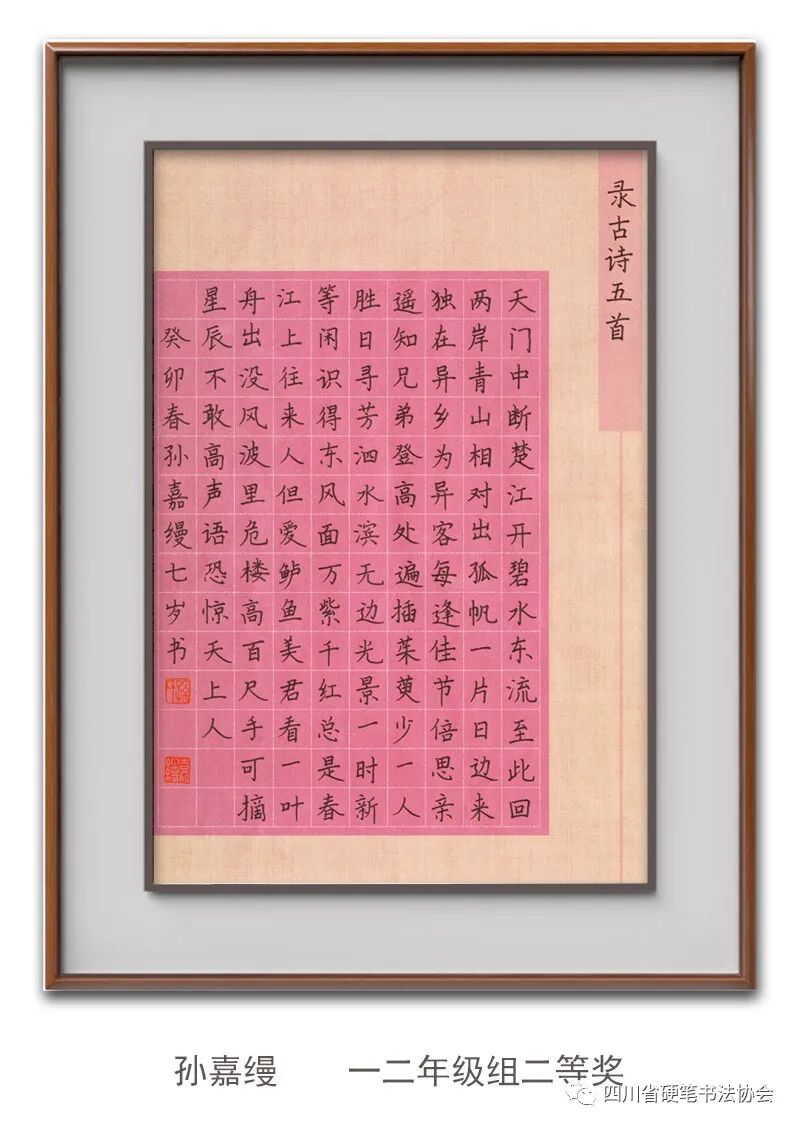 录古诗五首
天门中断楚江开碧水东流至此回
两岸青山相对出孤帆一片日边来
独在异乡为异客每逢佳节倍思亲
遥知兄弟登高处遍插茱萸少一人
胜日寻芳泗水滨无边光景一时新
等闲识得东风面万紫千红总是春
江上往来人但爱鲈鱼美君看一叶
舟出没风波里危楼高百尺手可摘
星辰不敢高声语恐惊天上人
癸卯春孙嘉缦七岁书
孙嘉缦 一二年级组二等奖
四川省硬笔书法协会